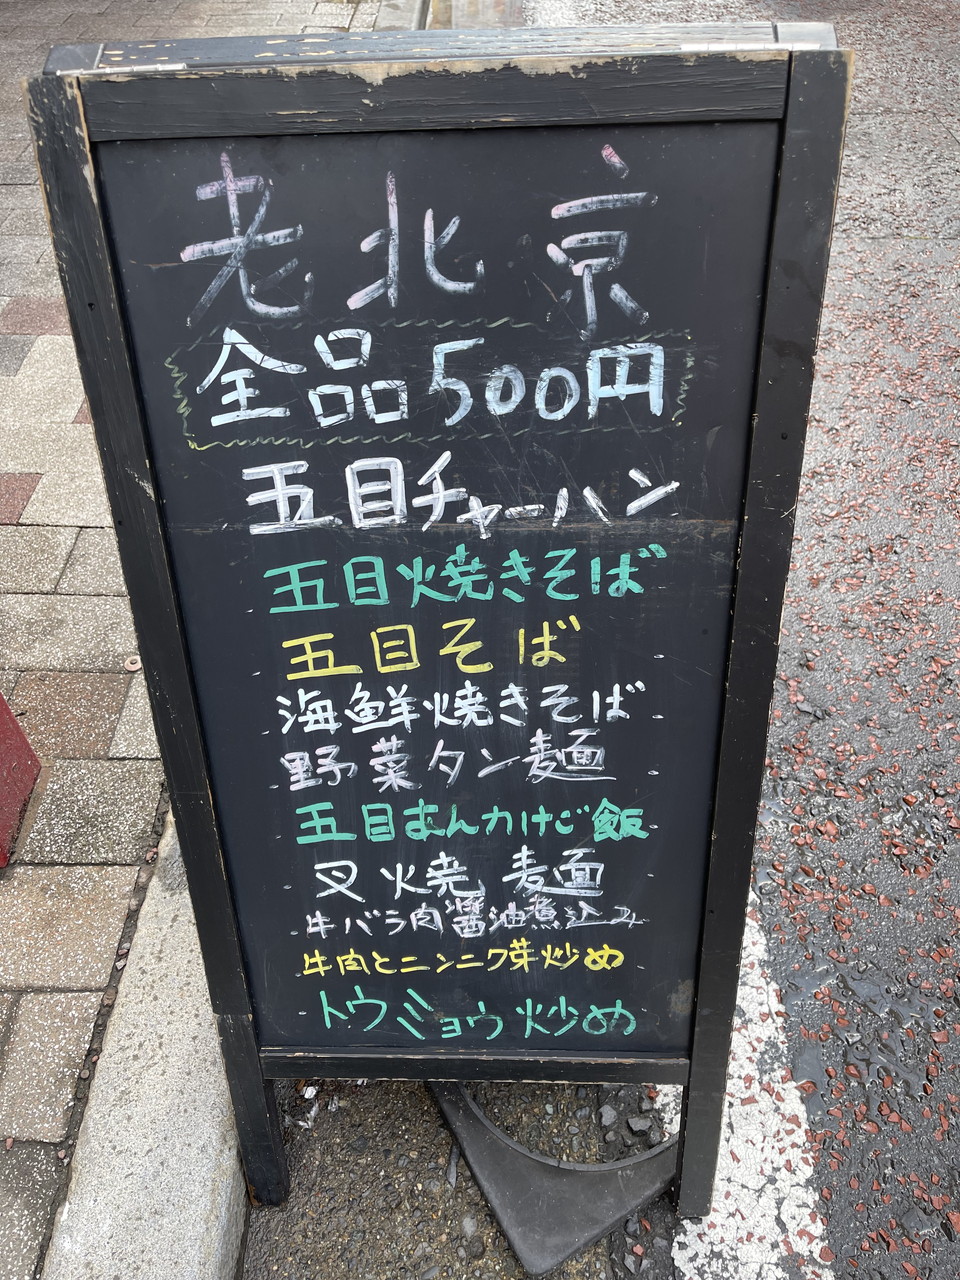 老北京
全品500円
五目チャーハン
五目焼きそば
五目そば
海鮮焼きそば
野菜タン麺
五目あんかけご飯
叉火焼 麺
牛バラ肉醤油煮込み
牛肉とニンニク芽炒め
トウミョウ炒め